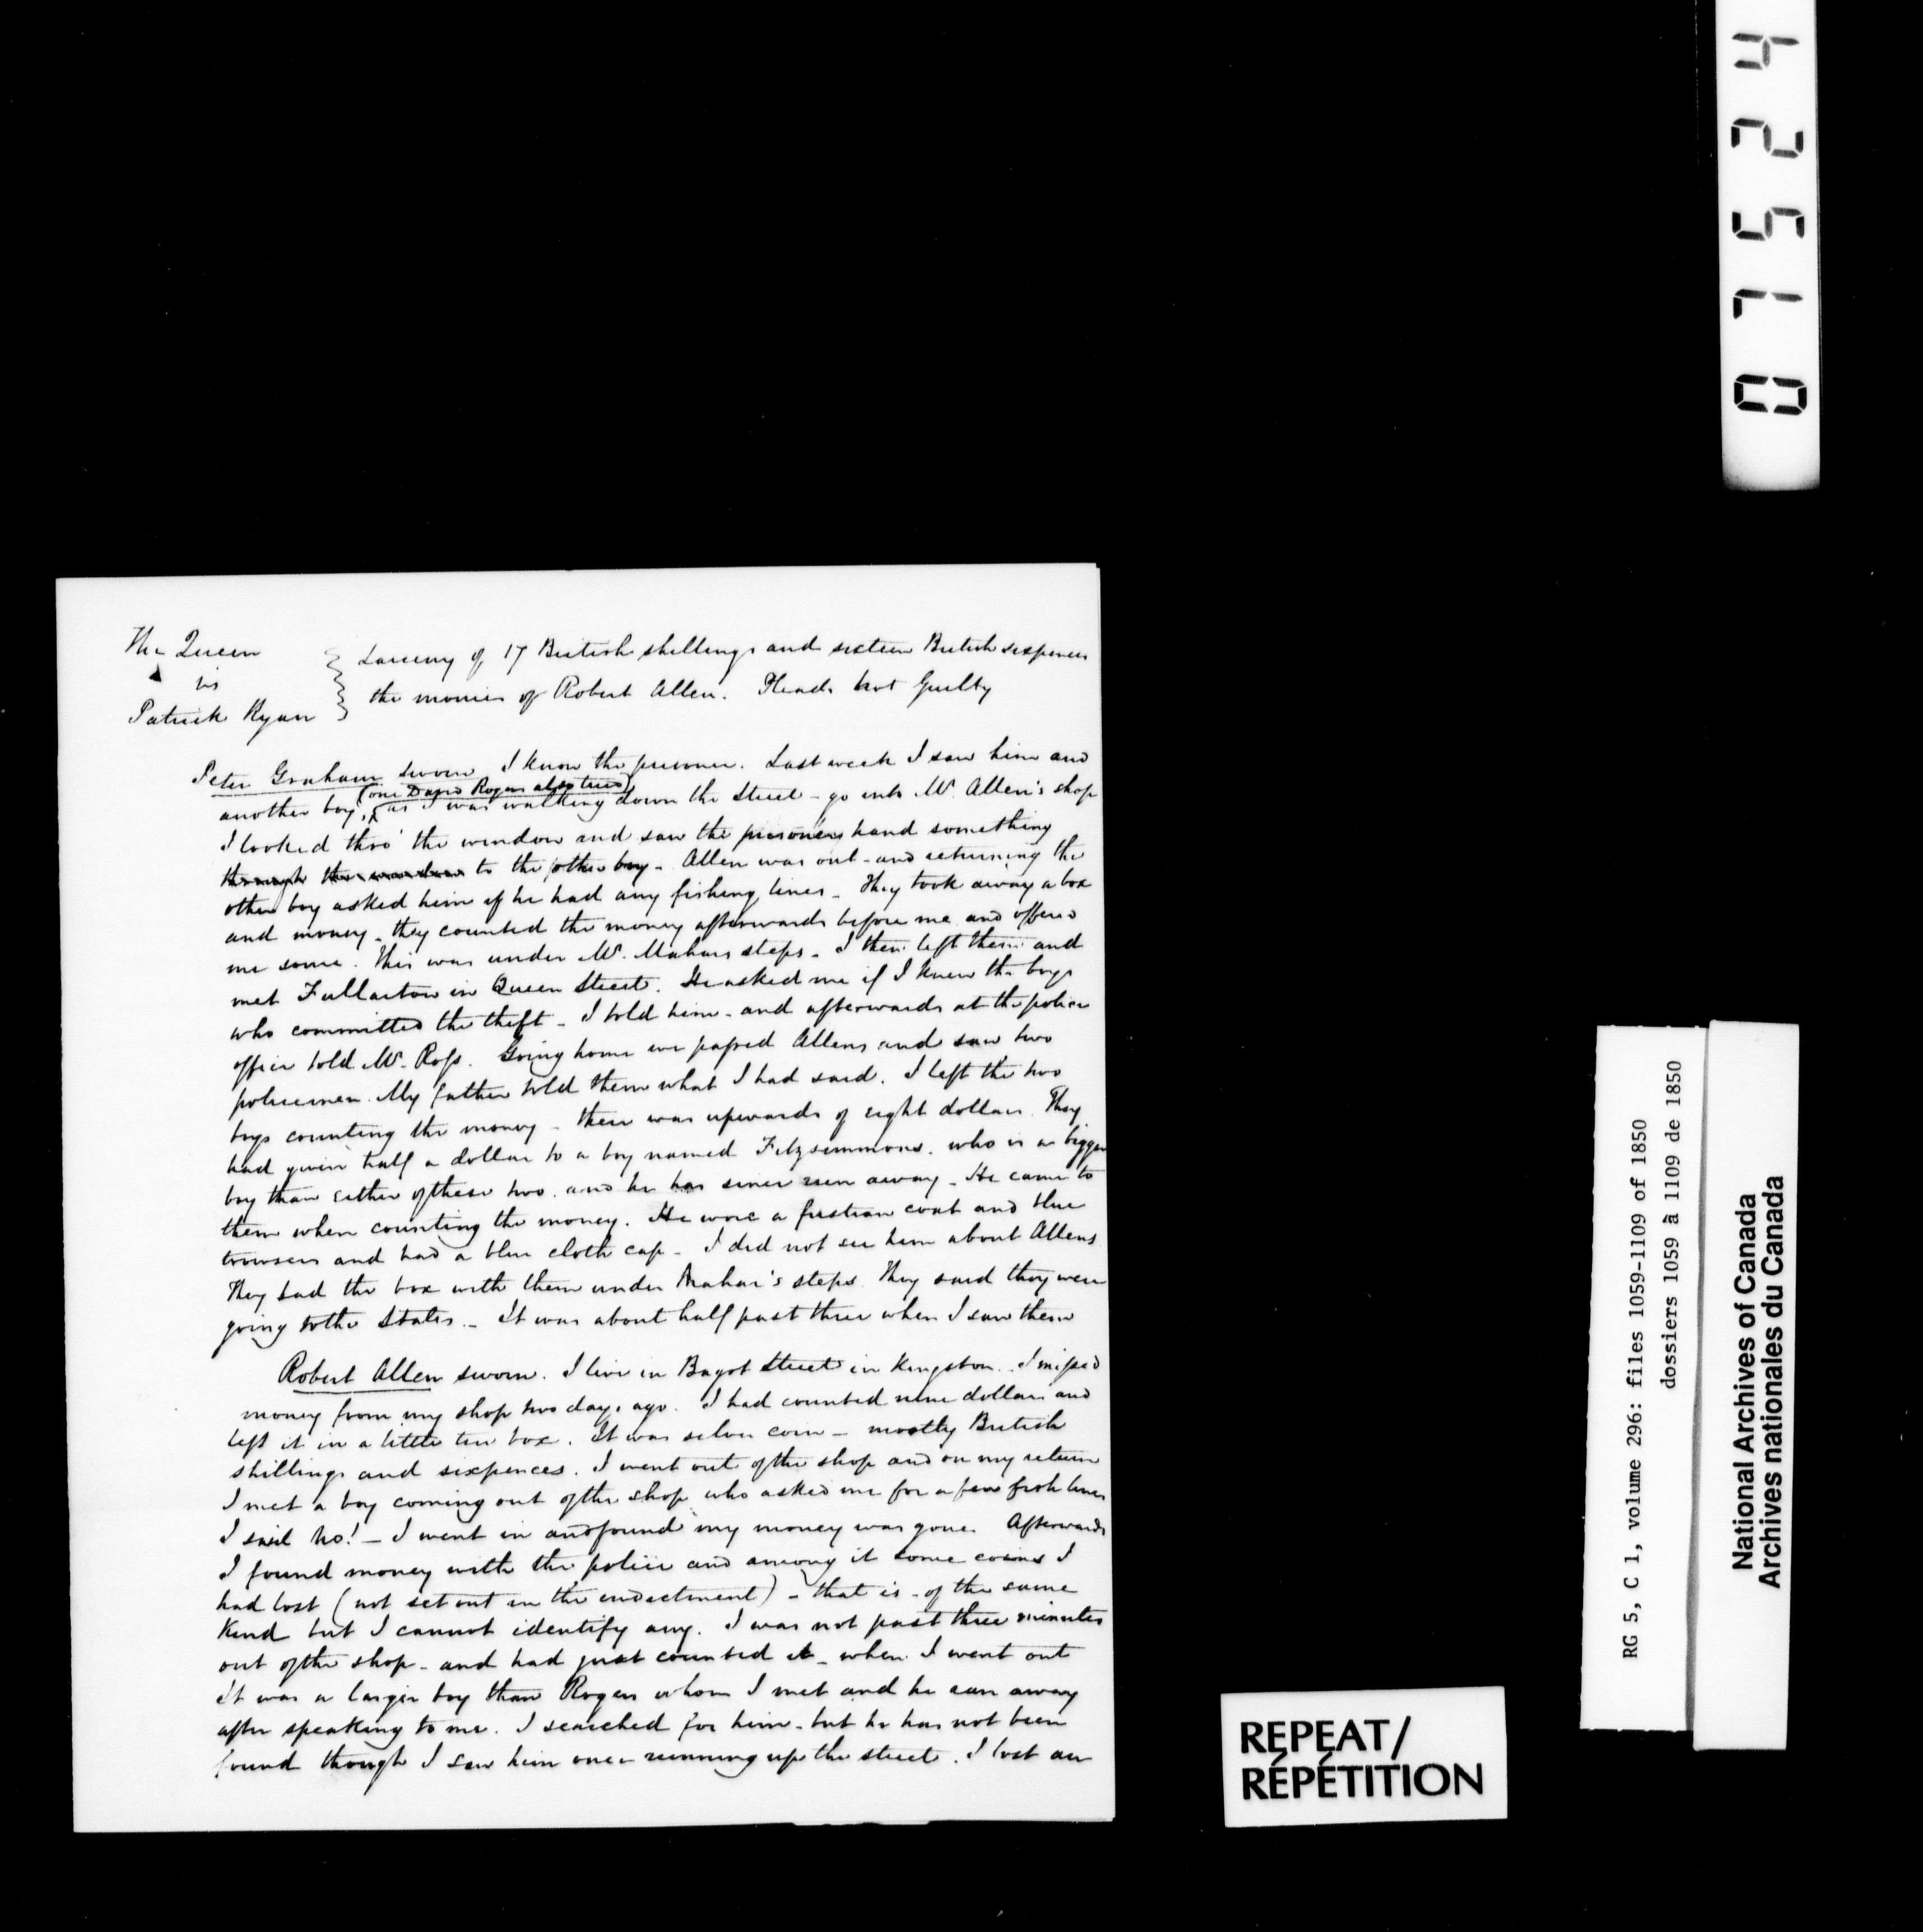 The Queen
vs
Patrick Ryan
Larceny of 17 British shillings and sixteen British sixpences
the monies of Robert Allen. Pleads Not Guilty
Peter Graham sworn I know the prisoner. Last week I saw him and
(one David Rogers also tried)
another boy, as I was walking down the Street - go into Mr. Allen's shop
I looked thro' the window and saw the prisoner hand something
through the window to the other boy - Allen was out - and returning the
other boy asked him if he had any fishing lines - They took away a box
and money - they counted the money afterwards before me and offered
me some. This was under Mr. Mahars steps - I then left them and
met Fullarton in Queen Street. He asked me if I knew the boys
who committed the theft - I told him - and afterwards at the police
office told Mr. Ross. Going home we passed Allens and saw two
policemen. My father told them what I had said. I left the two
boys counting the money - there was upwards of eight dollars. They
had given half a dollar to a boy named Fitzsimmons. who is a bigger
boy than either of these two. and he has since run away - He came to
them when counting the money. He wore a fustian coat and blue
trowsers and had a blue cloth cap - I did not see him about Allens
They had the box with them under Mahar's steps. They said they were
going to the States. - It was about half past three when I saw them
Robert Allen sworn. I live in Bagot Street in Kingston. - I missed
money from my shop two days ago. I had counted nine dollars and
left it in a little tin box. It was silver coin - mostly British
shillings and sixpences. I went out of the shop and on my return
I met a boy coming out of the shop who asked me for a few fish lines
I said No! - I went in and found my money was gone. Afterwards
I found money with the police and among it some coins I
had lost (not set out in the indictment) - that is - of the same
kind but I cannot identify any. I was not past three minutes
out of the shop - and had just counted it - when I went out
It was a larger boy than Rogers whom I met and he ran away
after speaking to me. I searched for him - but he has not been
found though I saw him once running up the street. I lost an
07524
RG 5, C 1, volume 296: files 1059-1109 of 1850
dossiers 1059 à 1109 de 1850
National Archives of Canada
Archives nationales du Canada
REPEAT/
RÉPÉTITION